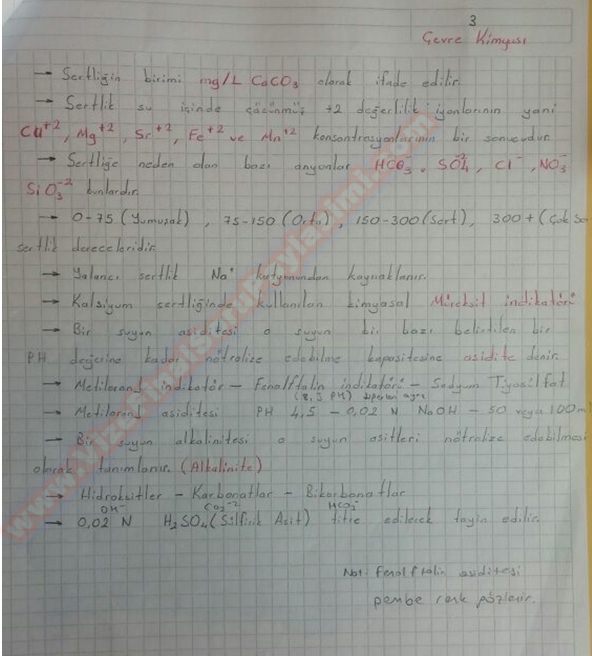 3
Çevre Kimyası
→ Sertliğin birimi mg/L CaCO3 olarak ifade edilir.
→ Sertlik su içinde çözünmüş +2 değerlilik iyonlarının yani
Ca+2, Mg+2, Sr+2, Fe+2 ve Mn+2 konsantrasyonlarının bir sonucudur.
→ Sertliğe neden olan bazı anyonlar HCO3-, SO4-2, Cl-, NO3-
SiO3-2 bunlardır.
→ 0-75 (Yumuşak), 75-150 (Orta), 150-300 (Sert), 300+ (Çok
sertlik dereceleridir.
→ Yalancı sertlik Na+ katyonundan kaynaklanır.
→ Kalsiyum sertliğinde kullanılan kimyasal Müreksit indikatörü
→ Bir suyun asiditesi o suyun bir bazı belirtilen bir
PH değerine kadar nötralize edebilme kapasitesine asidite denir.
→ Metiloranj indikatör - Fenolftalin indikatörü - Sodyum Tiyosülfat
(8,3 PH)
→ Metiloranj asiditesi PH 4,5 - 0,02 N NaOH - 50 veya 100 ml
→ Bir suyun alkalinitesi o suyun asitleri nötralize edebilmesi
olarak tanımlanır. (Alkalinite)
→ Hidroksitler - Karbonatlar - Bikarbonatlar
OH- CO3-2 HCO3-
→ 0,02 N H2SO4 (Sülfirik Asit) titre edilerek tayin edilir.
Not: Fenolftalin asiditesi
pembe renk gözlenir.
www.VizeFinalSoruPaylasimi.com